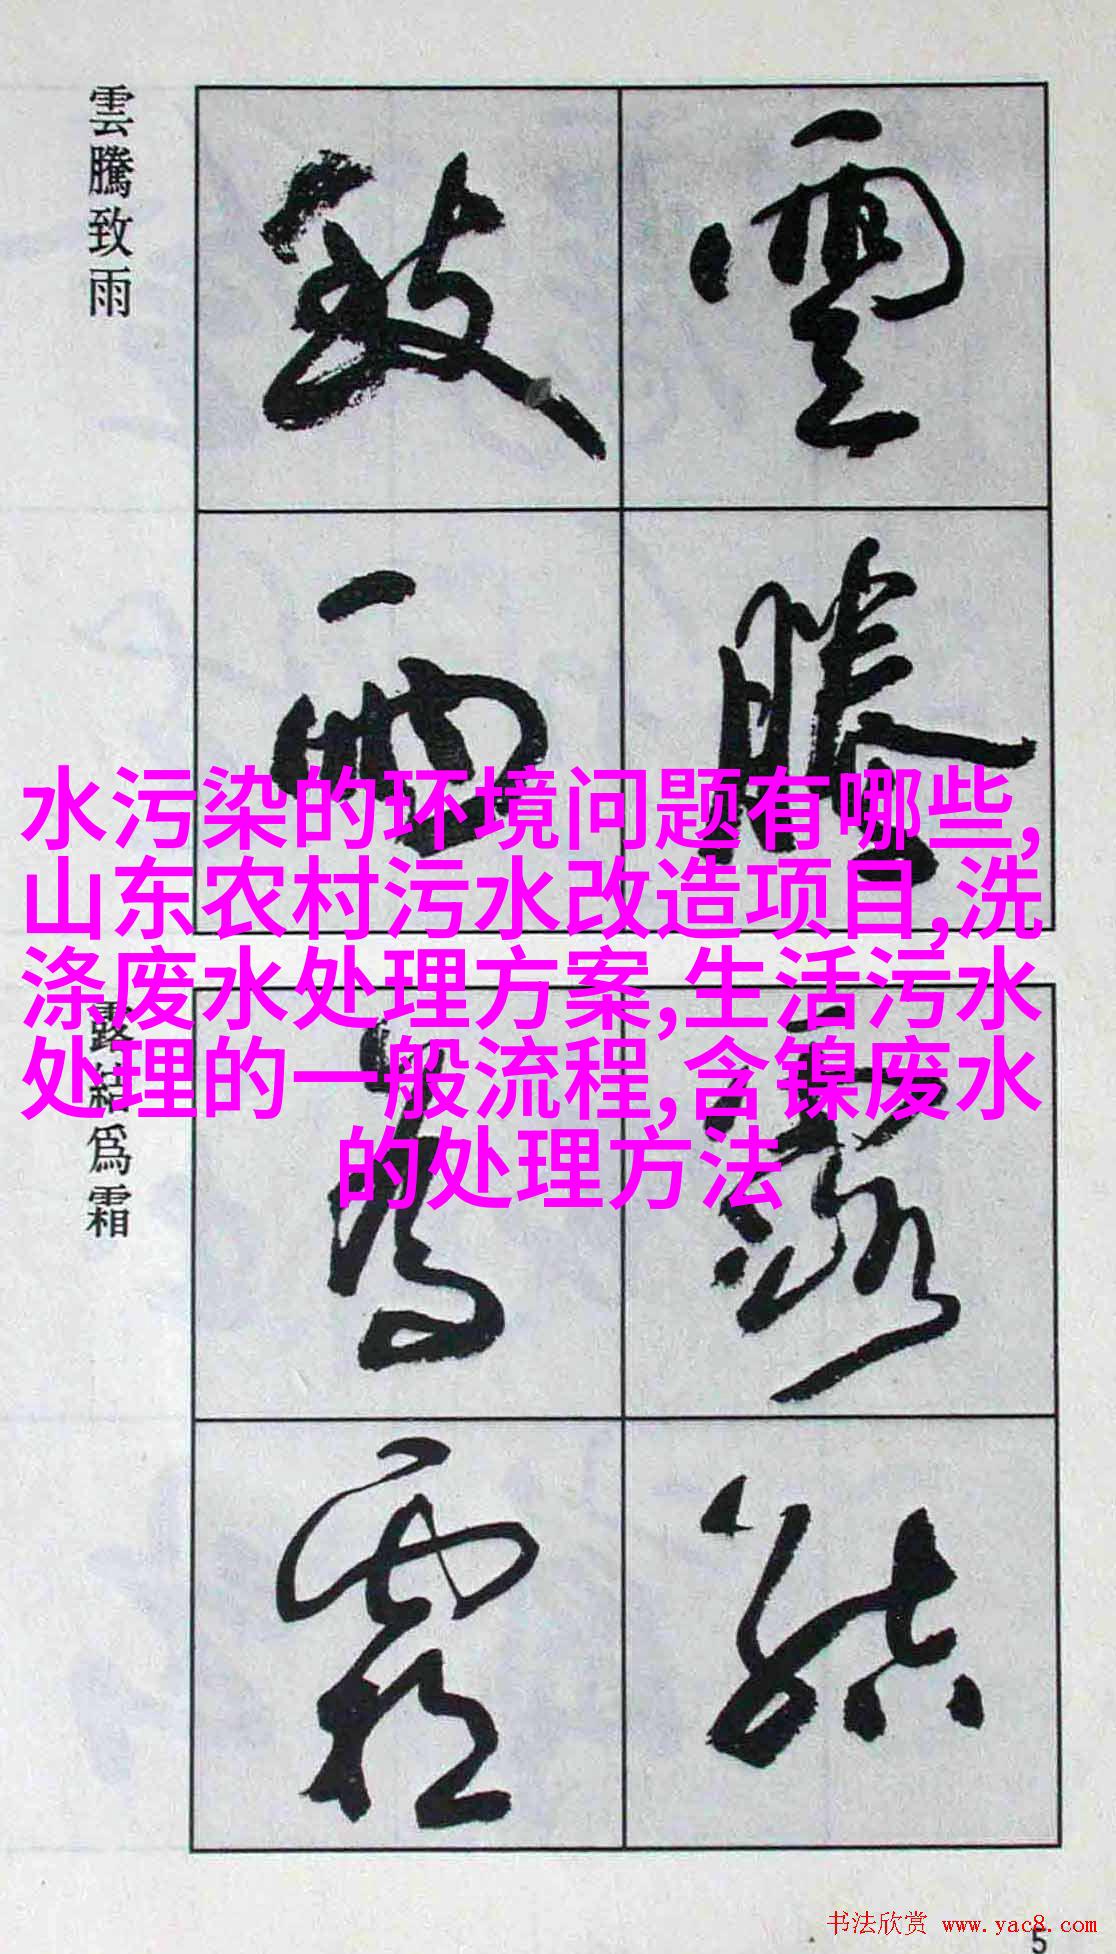 雲騰致雨
雲
騰
致
雨
水污染的环境问题有哪些,
山东农村污水改造项目,洗
涤废水处理方案,生活污水
处理的一般流程,含镍废水
的处理方法
露結爲霜
露
結
爲
霜
书法欣赏 www.yac8.com
5